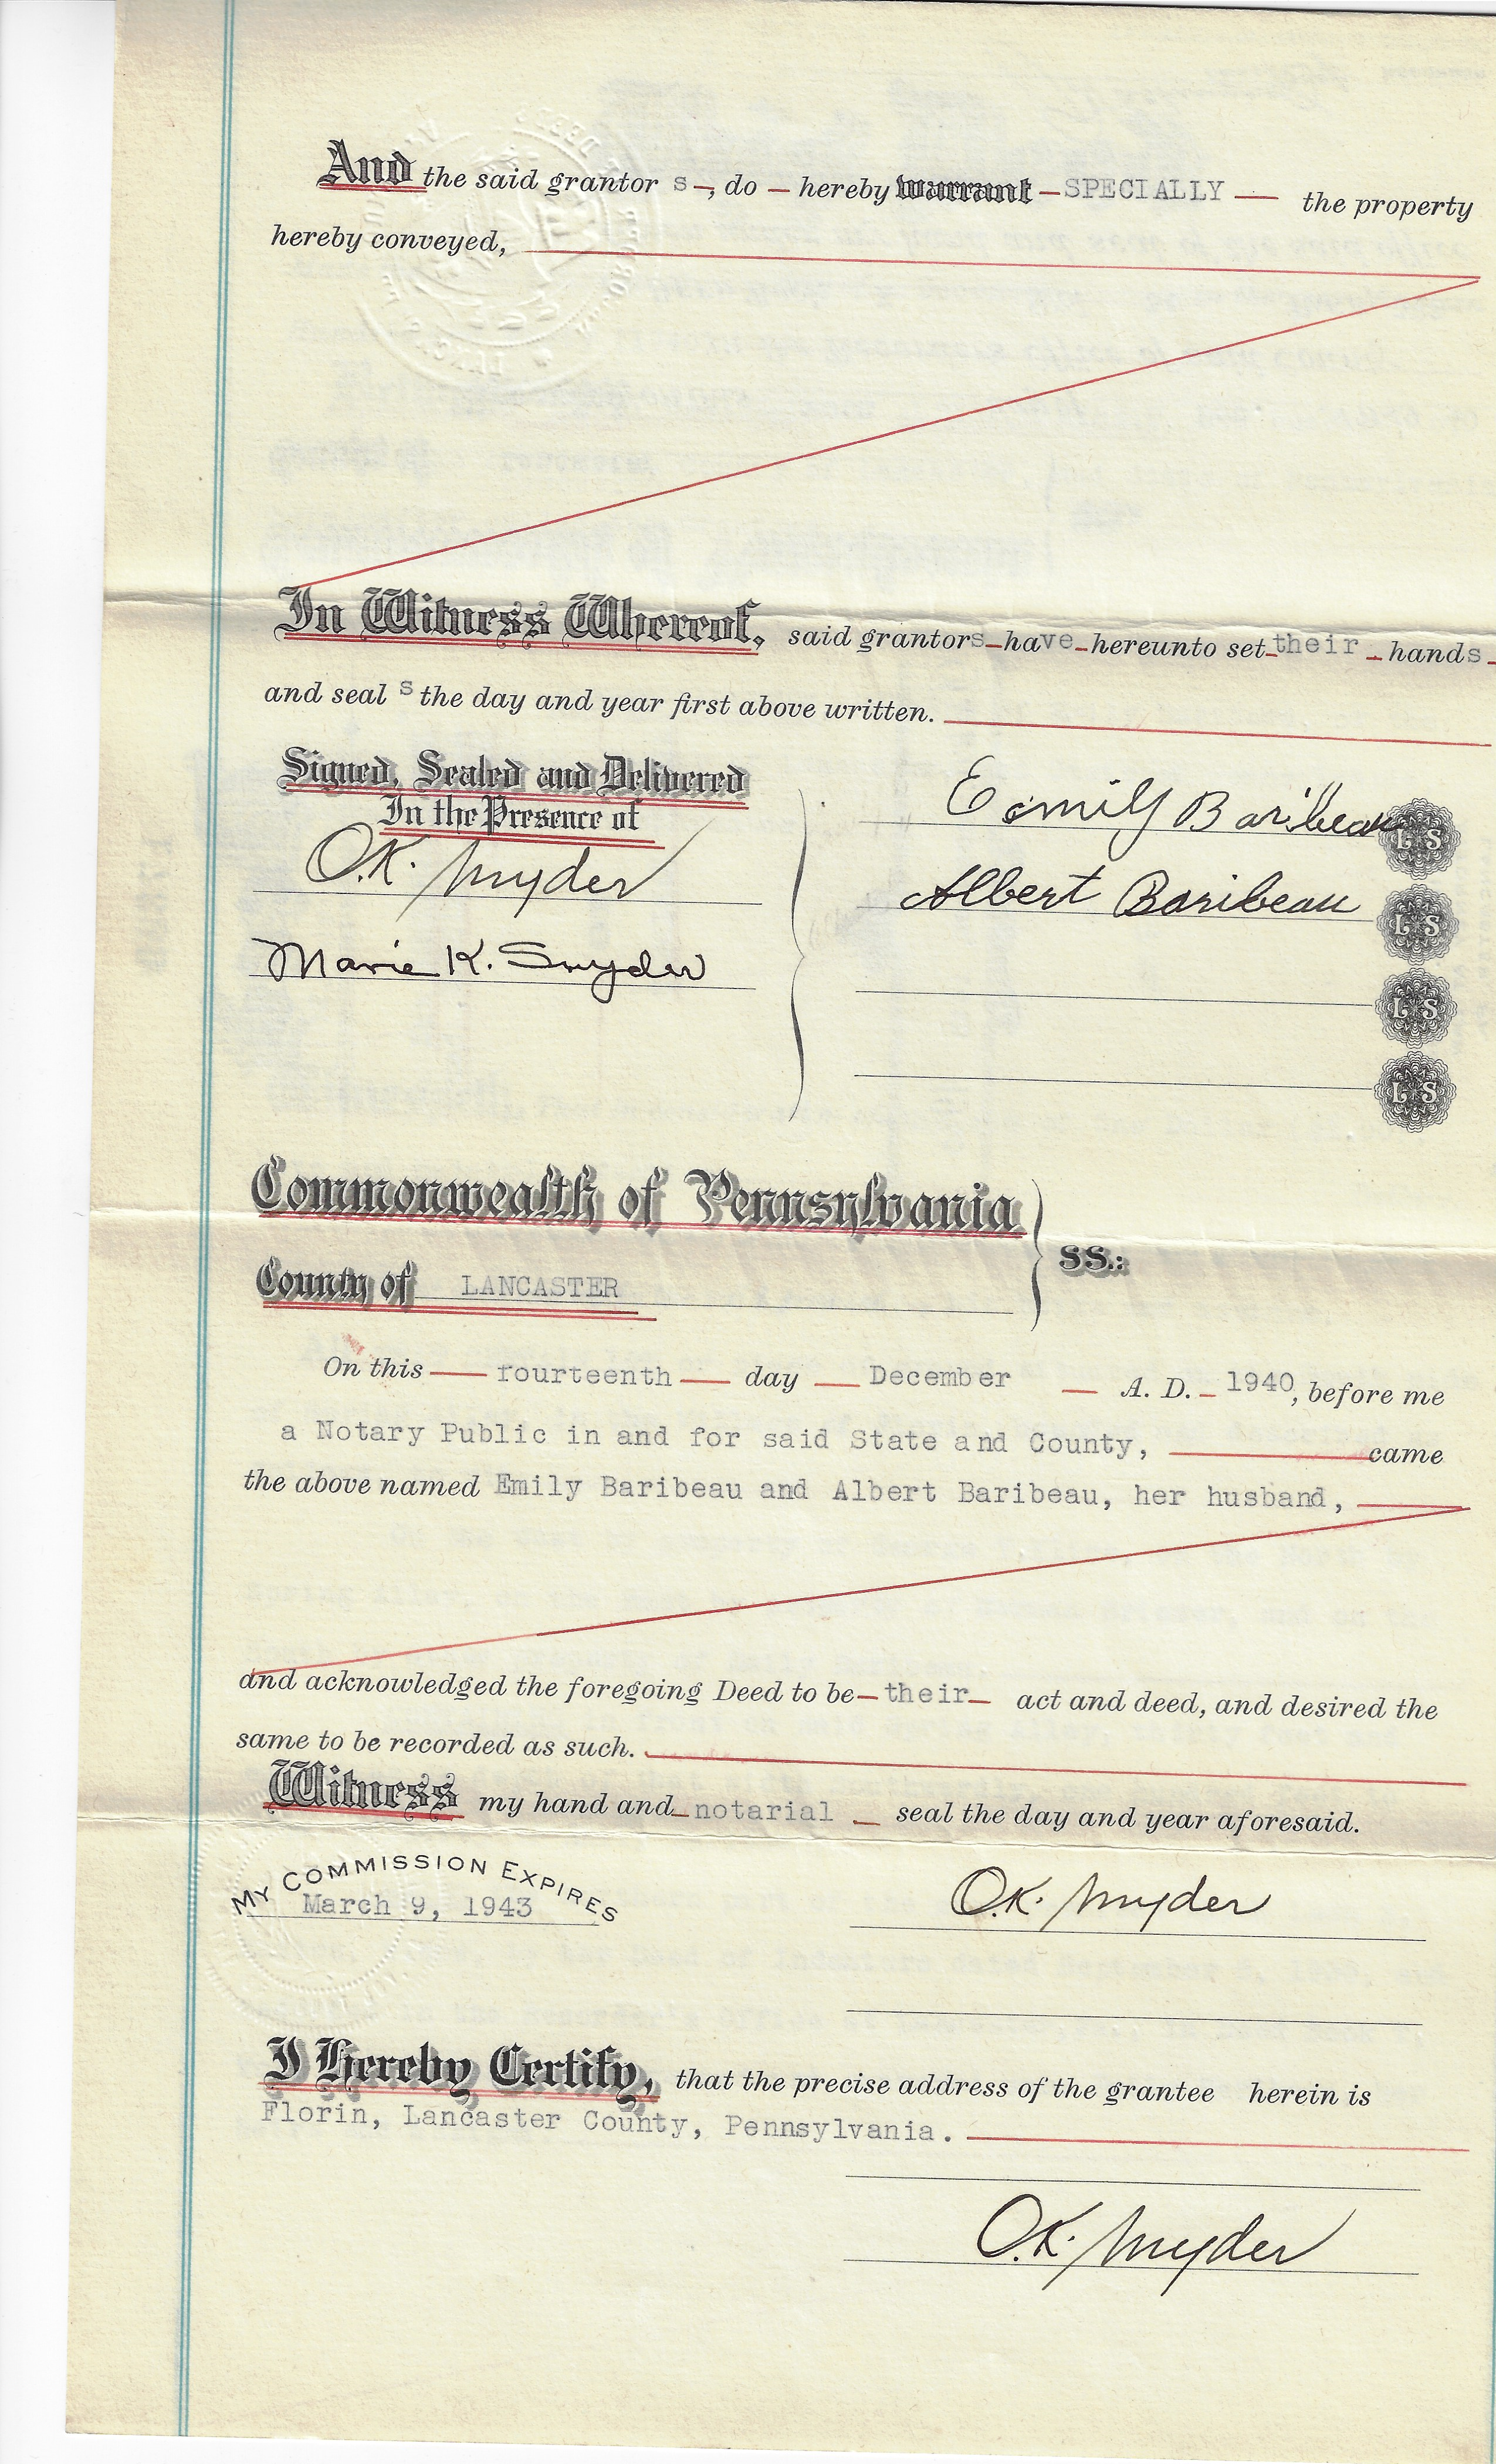 And the said grantor s, do hereby warrant SPECIALLY the property
hereby conveyed,
In Witness Whereof, said grantors have hereunto set their hands
and seal s the day and year first above written.
Signed, Sealed and Delivered
In the Presence of
O.K. Snyder
Marie K. Snyder
Emily Baribeau L S
Albert Baribeau L S
L S
L S
Commonwealth of Pennsylvania
County of LANCASTER
SS.:
On this fourteenth day December A. D. 1940, before me
a Notary Public in and for said State and County, came
the above named Emily Baribeau and Albert Baribeau, her husband,
and acknowledged the foregoing Deed to be their act and deed, and desired the
same to be recorded as such.
Witness my hand and notarial seal the day and year aforesaid.
MY COMMISSION EXPIRES
March 9, 1943
O.K. Snyder
I Hereby Certify, that the precise address of the grantee herein is
Florin, Lancaster County, Pennsylvania.
O.K. Snyder